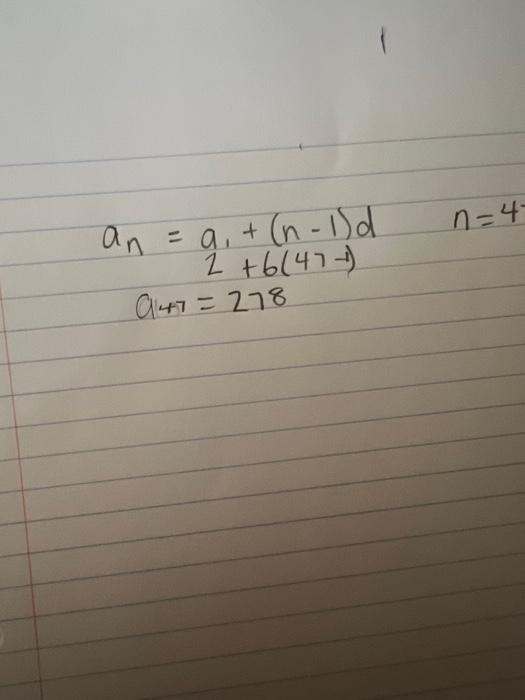 aₙ = a₁ + (n - 1)d n = 4
2 + 6(47 - 1)
a₄₇ = 278